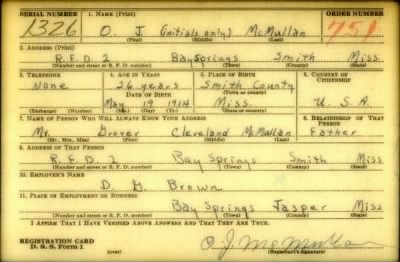 SERIAL NUMBER 1. NAME (Print) ORDER NUMBER
1326 O. J. (initials only) McMullan 751
(First) (Middle) (Last)
2. ADDRESS (Print)
R.F.D. 2 Bay Springs Smith Miss.
(Number and street or R. F. D. number) (Town) (County) (State)
3. TELEPHONE 4. AGE IN YEARS 5. PLACE OF BIRTH 6. COUNTRY OF CITIZENSHIP
None 26 years Smith County
DATE OF BIRTH (Town or county)
May 19 1914 Miss. U.S.A.
(Exchange) (Number) (Mo.) (Day) (Yr.) (State or country)
7. NAME OF PERSON WHO WILL ALWAYS KNOW YOUR ADDRESS 8. RELATIONSHIP OF THAT PERSON
Mr. Grover Cleveland McMullan Father
(Mr., Mrs., Miss) (First) (Middle) (Last)
9. ADDRESS OF THAT PERSON
R.F.D. 2 Bay Springs Smith Miss
(Number and street or R. F. D. number) (Town) (County) (State)
10. EMPLOYER'S NAME
D. G. Brown
11. PLACE OF EMPLOYMENT OR BUSINESS
Bay Springs Jasper Miss
(Number and street or R. F. D. number) (Town) (County) (State)
I AFFIRM THAT I HAVE VERIFIED ABOVE ANSWERS AND THAT THEY ARE TRUE.
REGISTRATION CARD
D. S. S. Form 1 O. J. McMullan
(over) (Registrant's signature)